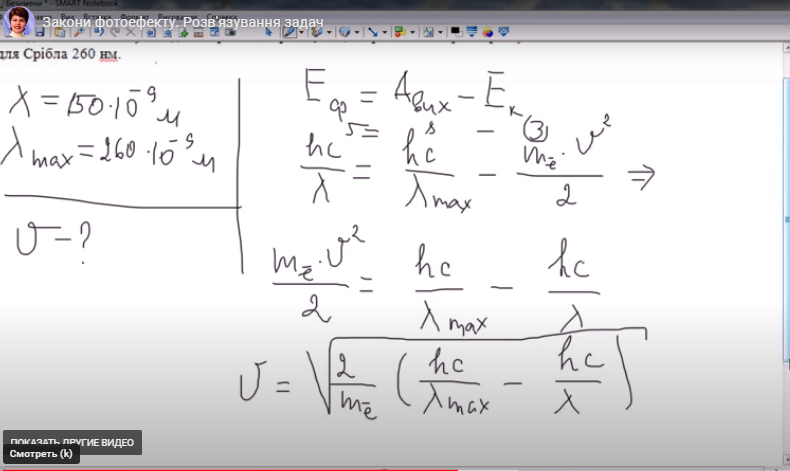 Безимени * - SMART Notebook
Закони фотоефекту. Розв'язування задач
для Срібла 260 нм.
λ = 150·10⁻⁹ м
λ max = 260·10⁻⁹ м
υ - ?
E ф = A вих – E к
5 = 8 – (3)
hc/λ = hc/λ max – m ē · υ²/2 ⇒
m ē · υ²/2 = hc/λ max – hc/λ
υ = √(2/m ē (hc/λ max – hc/λ))
ПОКАЗАТЬ ДРУГИЕ ВИДЕО
Смотреть (k)